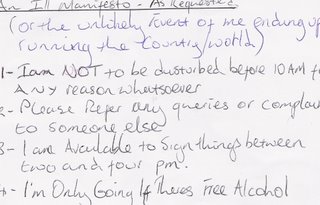 An Ill Manifesto - As Requested
(or the unlikely Event of me ending up
running the Country/world)
1- I am NOT to be disturbed before 10AM for
ANY reason whatsoever
2- Please Refer any queries or complaints
to someone else
3- I am Available to Sign things between
two and four pm.
4- I'm Only Going If Theres Free Alcohol